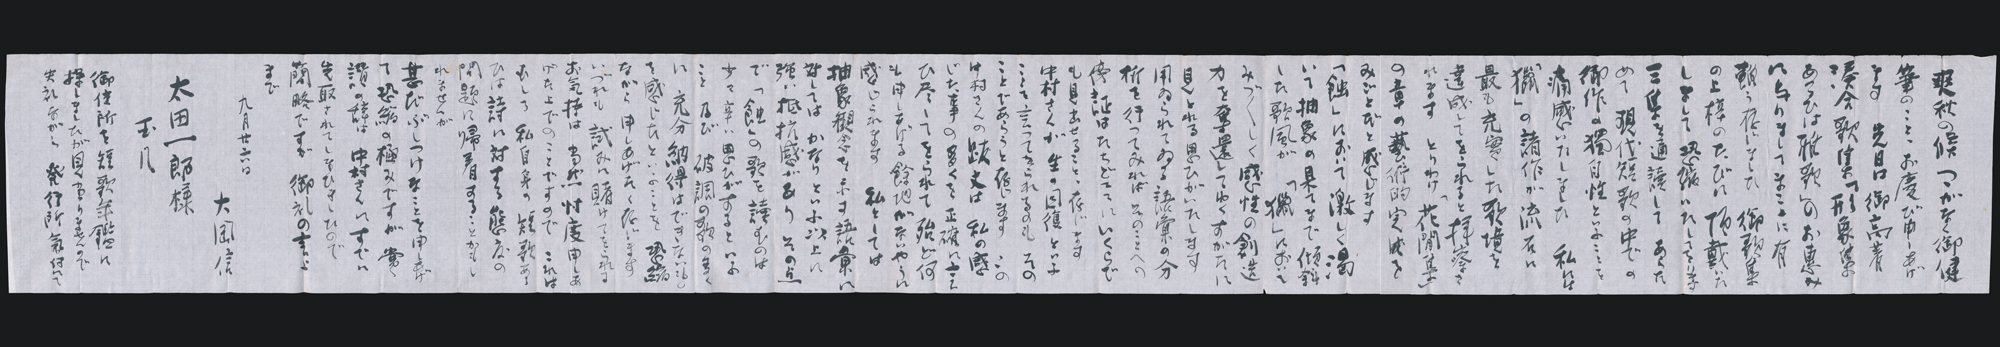 爽秋の候 つがなく御健
筆のこと お慶び申しあげ
ます 先日は御高著
湊合歌集「形象集
あるひは雅歌」のお恵み
に与りましてまことに有
難う存じました 御歌集
の上梓のたびに 頂戴いた
しまして 恐縮いたしてをりま
三集を通読して あらた
めて 現代短歌の中での
御作の独自性といふことを
痛感いたしました 私には
「獵」の諸作が 流石に
最も充實した歌境を
達成してをられると 拝察さ
れます とりわけ「花間集」
の章の藝術的完成を
みごとだと感じます
「蝕」において 激しく渇
いて 抽象の果てまで傾斜
した歌風が 「獵」において
みづ〳〵しく感性の創造
力を奪還してゆくすがたに
目をみはる思ひがいたします
用ゐられてゐる語彙の分
析を行つてみれば そのことへの
傍証はたちどころに いくらで
も見出せること と存じます
中村さんが 生の回復といふ
ことを言つてをられるのも その
ことであらうと存じます この
中村さんの跋文は 私の感
じた事の多くを 正確に言
ひ尽してをられて 殆ど何
も申しあげる余地がないやうに
感じられます 私としては
抽象観念を示す語彙に
対しては かなりといふ以上に
強い抵抗感があり その点
で「蝕」の歌を読むのは
少々辛い思ひがするといふ
こと 及び 破調の歌の多く
に 充分納得はできないもの
を感じたといふことを 恐縮
ながら申しあげたく存じます
いづれも 試みに賭けてをられる
お気持は 当然忖度申しあ
げた上でのことですので これは
むしろ 私自身の 短歌ある
ひは詩に対する態度の
問題に帰着することかもし
れませんが
甚だぶしつけなことを申しあげ
て 恐縮の極みですが 賞
讃の辞は 中村さんにすでに
先取されてしまひましたので
簡略ですが 御礼の言葉
まで
九月廿六日
大岡信
太田一郎様
玉几
御住所を短歌年鑑に
探しましたが見当りませんので
失礼ながら 発行所気付にて